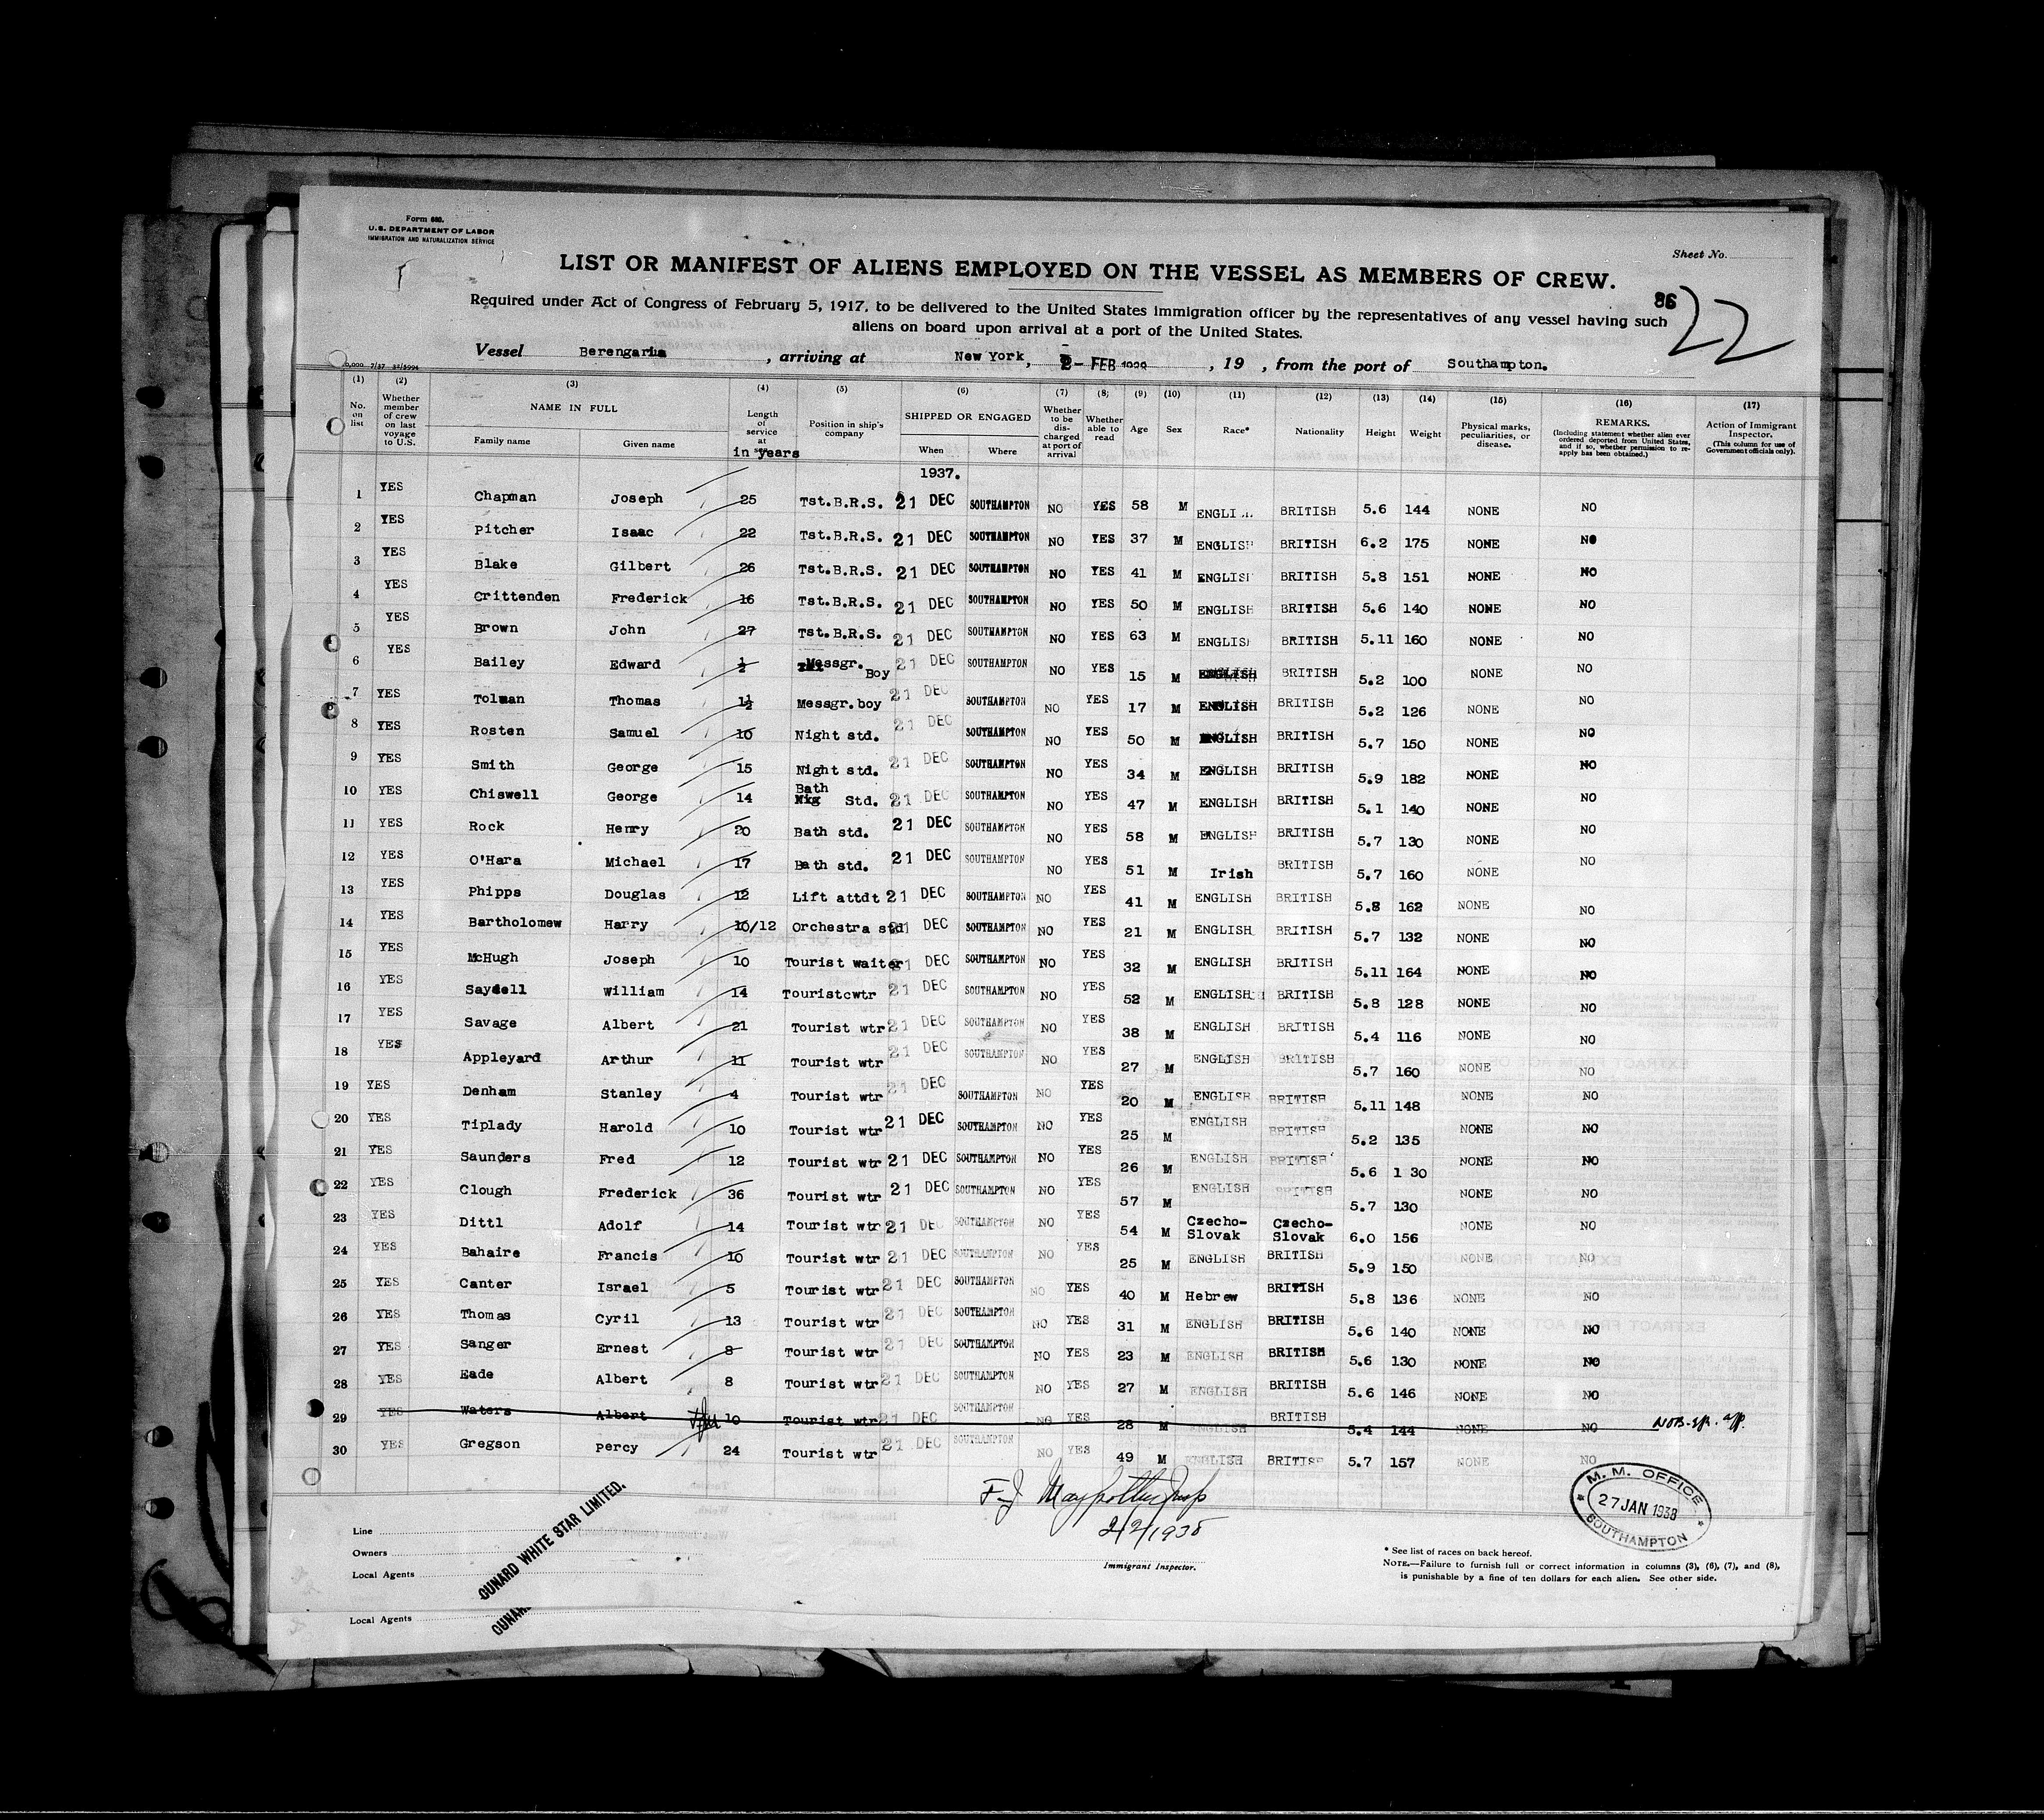 Form 680.
U.S. DEPARTMENT OF LABOR
IMMIGRATION AND NATURALIZATION SERVICE
Sheet No.
LIST OR MANIFEST OF ALIENS EMPLOYED ON THE VESSEL AS MEMBERS OF CREW.
86 22
Required under Act of Congress of February 5, 1917, to be delivered to the United States immigration officer by the representatives of any vessel having such
aliens on board upon arrival at a port of the United States.
Vessel Berengaria, arriving at New York, 2 - FEB, 19 , from the port of Southampton.
(1) (2) (3) (4) (5) (6) (7) (8) (9) (10) (11) (12) (13) (14) (15) (16) (17)
No. on list
Whether member of crew on last voyage to U.S.
NAME IN FULL
Family name
Given name
Length of service at
in years
Position in ship's company
SHIPPED OR ENGAGED
When
Where
Whether to be discharged at port of arrival
Whether able to read
Age
Sex
Race*
Nationality
Height
Weight
Physical marks, peculiarities, or disease.
REMARKS.
(Including statement whether alien ever ordered deported from United States, and if so, whether permission to re-apply has been obtained.)
Action of Immigrant Inspector.
(This column for use of Government officials only).
1937.
1 YES Chapman Joseph 25 Tst.B.R.S. 21 DEC SOUTHAMPTON NO YES 58 M ENGLI BRITISH 5.6 144 NONE NO
2 YES Pitcher Isaac 22 Tst.B.R.S. 21 DEC SOUTHAMPTON NO YES 37 M ENGLISH BRITISH 6.2 175 NONE NO
3 YES Blake Gilbert 26 Tst.B.R.S. 21 DEC SOUTHAMPTON NO YES 41 M ENGLISH BRITISH 5.8 151 NONE NO
4 YES Crittenden Frederick 16 Tst.B.R.S. 21 DEC SOUTHAMPTON NO YES 50 M ENGLISH BRITISH 5.6 140 NONE NO
5 YES Brown John 27 Tst.B.R.S. 21 DEC SOUTHAMPTON NO YES 63 M ENGLISH BRITISH 5.11 160 NONE NO
6 YES Bailey Edward ½ Messgr. Boy 21 DEC SOUTHAMPTON NO YES 15 M ENGLISH BRITISH 5.2 100 NONE NO
7 YES Tolman Thomas 1½ Messgr.boy 21 DEC SOUTHAMPTON NO YES 17 M ENGLISH BRITISH 5.2 126 NONE NO
8 YES Rosten Samuel 10 Night std. 21 DEC SOUTHAMPTON NO YES 50 M ENGLISH BRITISH 5.7 150 NONE NO
9 YES Smith George 15 Night std. 21 DEC SOUTHAMPTON NO YES 34 M ENGLISH BRITISH 5.9 182 NONE NO
10 YES Chiswell George 14 Bath Std. 21 DEC SOUTHAMPTON NO YES 47 M ENGLISH BRITISH 5.1 140 NONE NO
11 YES Rock Henry 20 Bath std. 21 DEC SOUTHAMPTON NO YES 58 M ENGLISH BRITISH 5.7 130 NONE NO
12 YES O'Hara Michael 17 Bath std. 21 DEC SOUTHAMPTON NO YES 51 M Irish BRITISH 5.7 160 NONE NO
13 YES Phipps Douglas 12 Lift attdt 21 DEC SOUTHAMPTON NO YES 41 M ENGLISH BRITISH 5.8 162 NONE NO
14 YES Bartholomew Harry 10/12 Orchestra std 21 DEC SOUTHAMPTON NO YES 21 M ENGLISH BRITISH 5.7 132 NONE NO
15 YES McHugh Joseph 10 Tourist waiter 21 DEC SOUTHAMPTON NO YES 32 M ENGLISH BRITISH 5.11 164 NONE NO
16 YES Saydell William 14 Touristcwtr 21 DEC SOUTHAMPTON NO YES 52 M ENGLISH BRITISH 5.8 128 NONE NO
17 YES Savage Albert 21 Tourist wtr 21 DEC SOUTHAMPTON NO YES 38 M ENGLISH BRITISH 5.4 116 NONE NO
18 YES Appleyard Arthur 11 Tourist wtr 21 DEC SOUTHAMPTON NO YES 27 M ENGLISH BRITISH 5.7 160 NONE NO
19 YES Denham Stanley 4 Tourist wtr 21 DEC SOUTHAMPTON NO YES 20 M ENGLISH BRITISH 5.11 148 NONE NO
20 YES Tiplady Harold 10 Tourist wtr 21 DEC SOUTHAMPTON NO YES 25 M ENGLISH BRITISH 5.2 135 NONE NO
21 YES Saunders Fred 12 Tourist wtr 21 DEC SOUTHAMPTON NO YES 26 M ENGLISH BRITISH 5.6 1 30 NONE NO
22 YES Clough Frederick 36 Tourist wtr 21 DEC SOUTHAMPTON NO YES 57 M ENGLISH BRITISH 5.7 130 NONE NO
23 YES Dittl Adolf 14 Tourist wtr 21 DEC SOUTHAMPTON NO YES 54 M Czecho-Slovak Czecho-Slovak 6.0 156 NONE NO
24 YES Bahaire Francis 10 Tourist wtr 21 DEC SOUTHAMPTON NO YES 25 M ENGLISH BRITISH 5.9 150 NONE NO
25 YES Canter Israel 5 Tourist wtr 21 DEC SOUTHAMPTON NO YES 40 M Hebrew BRITISH 5.8 136 NONE NO
26 YES Thomas Cyril 13 Tourist wtr 21 DEC SOUTHAMPTON NO YES 31 M ENGLISH BRITISH 5.6 140 NONE NO
27 YES Sanger Ernest 8 Tourist wtr 21 DEC SOUTHAMPTON NO YES 23 M ENGLISH BRITISH 5.6 130 NONE NO
28 YES Eade Albert 8 Tourist wtr 21 DEC SOUTHAMPTON NO YES 27 M ENGLISH BRITISH 5.6 146 NONE NO
29 YES Waters Albert 10 Tourist wtr 21 DEC SOUTHAMPTON NO YES 28 M ENGLISH BRITISH 5.4 144 NONE NO
30 YES Gregson Percy 24 Tourist wtr 21 DEC SOUTHAMPTON NO YES 49 M ENGLISH BRITISH 5.7 157 NONE NO
2/2/1938
Immigrant Inspector.
M. M. OFFICE
27 JAN 1938
SOUTHAMPTON
Line
Owners
Local Agents
CUNARD WHITE STAR LIMITED.
* See list of races on back hereof.
NOTE.—Failure to furnish full or correct information in columns (3), (6), (7), and (8),
is punishable by a fine of ten dollars for each alien. See other side.
Local Agents
CUNAR